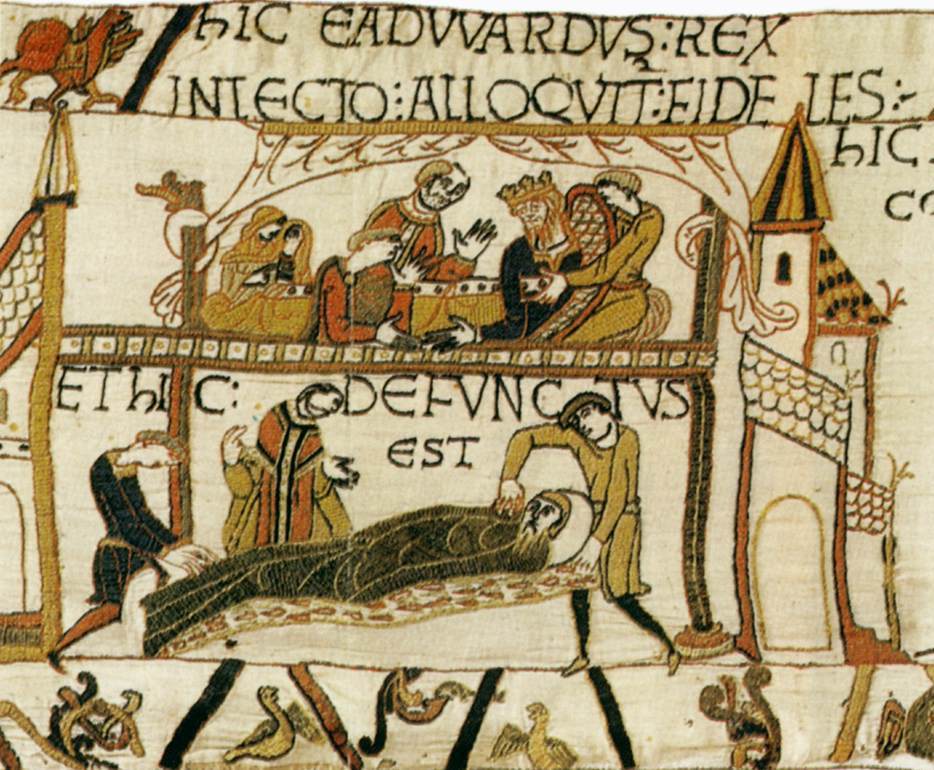 hIC EADVVARDVS:REX
INLECTO:ALLOQVIT:FIDELES:
hIC
ET hIC: DEFVNCTUS
EST